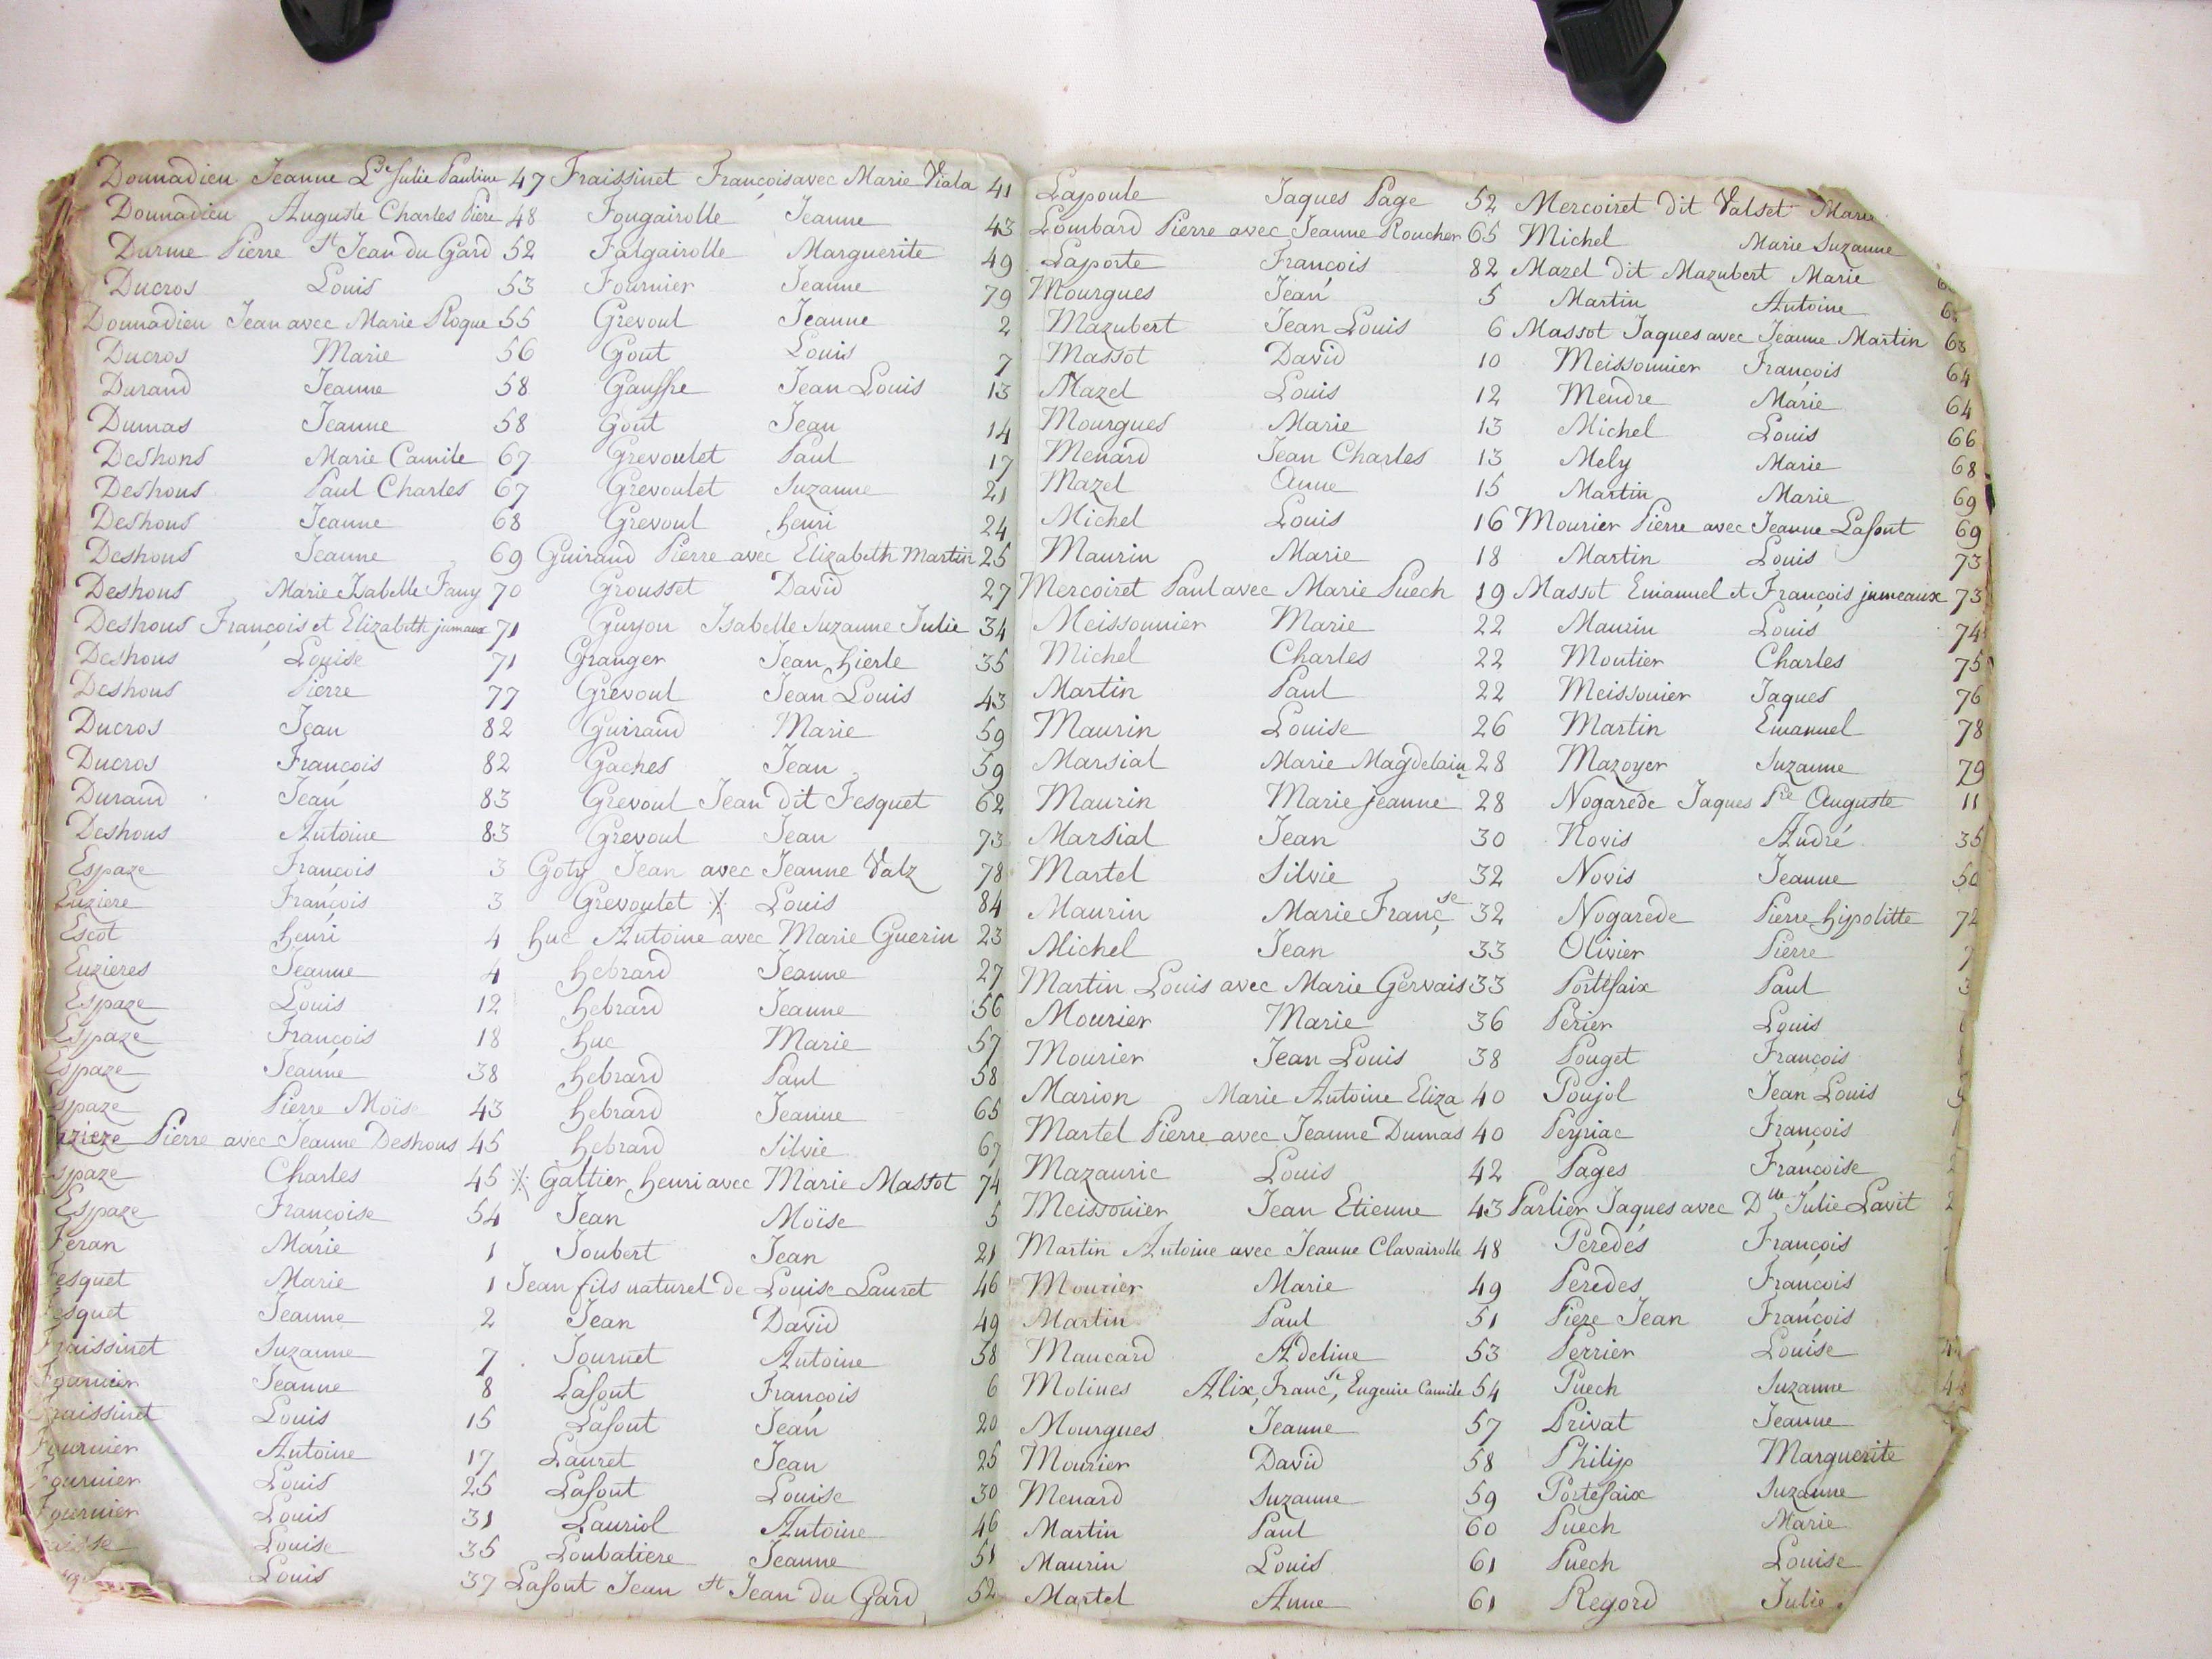 Donnadieu Jeanne Lse Julie Pauline 47
Donnadieu Auguste Charles Pierre 48
Durme Pierre St Jean du Gard 52
Ducros Louis 53
Donnadieu Jean avec Marie Roque 55
Ducros Marie 56
Durand Jeanne 58
Dumas Jeanne 58
Deshons Marie Camile 67
Deshons Paul Charles 67
Deshons Jeanne 68
Deshons Jeanne 69
Deshons Marie Isabelle Fany 70
Deshons François et Elizabeth jumaux 71
Deshons Louise 71
Deshons Pierre 77
Ducros Jean 82
Ducros François 82
Durand Jean 83
Deshons Antoine 83
Espaze François 3
Euziere François 3
Escot henri 4
Euzieres Jeanne 4
Espaze Louis 12
Espaze François 18
Espaze Jeanne 38
Espaze Pierre Moïse 43
Pierre avec Jeanne Deshons 45
Espaze Charles 45
Espaze Françoise 54
Feran Marie 1
Fesquet Marie 1
Fesquet Jeanne 2
Fraissinet Suzanne 7
Fournier Jeanne 8
Fraissinet Louis 15
Fournier Antoine 17
Fournier Louis 25
Fournier Louis 31
Louise 35
Louis 37
Fraissinet François avec Marie Viala 41
Fougairolle Jeanne 43
Falgairolle Marguerite 49
Fournier Jeanne 79
Grevoul Jeanne 2
Gout Louis 7
Gausse Jean Louis 13
Gout Jean 14
Grevoulet Paul 17
Grevoulet Suzanne 21
Grevoul henri 24
Guiraud Pierre avec Elizabeth Martin 25
Grousset David 27
Guyon Isabelle Suzanne Julie 34
Granger Jean hierle 35
Grevoul Jean Louis 43
Guiraud Marie 59
Gaches Jean 59
Grevoul Jean dit Fesquet 62
Grevoul Jean 73
Goty Jean avec Jeanne Valz 78
Grevoulet ⁒ Louis 84
huc Antoine avec Marie Guerin 23
hebrard Jeanne 27
hebrard Jeanne 56
huc Marie 57
hebrard Paul 58
hebrard Jeanne 65
hebrard Silvie 67
⁒ Galtier henri avec Marie Massot 74
Jean Moïse 5
Joubert Jean 21
Jean fils naturel de Louise Lauret 46
Jean David 49
Journet Antoine 58
Lafont François 6
Lafont Jean 20
Lauret Jean 25
Lafont Louise 30
Lauriol Antoine 46
Loubatiere Jeanne 51
Lafont Jean St Jean du Gard 52
Lapoule Jaques Page 52
Lombard Pierre avec Jeanne Roucher 65
Laporte François 82
Mourgues Jean 5
Mazubert Jean Louis 6
Massot David 10
Mazel Louis 12
Mourgues Marie 13
Menard Jean Charles 13
Mazel Anne 15
Michel Louis 16
Maurin Marie 18
Mercoiret Paul avec Marie Puech 19
Meissonnier Marie 22
Michel Charles 22
Martin Paul 22
Maurin Louise 26
Marsial Marie Magdelaine 28
Maurin Marie jeanne 28
Marsial Jean 30
Martel Silvie 32
Maurin Marie Françse 32
Michel Jean 33
Martin Louis avec Marie Gervais 33
Mourier Marie 36
Mourier Jean Louis 38
Marion Marie Antoine Eliza 40
Martel Pierre avec Jeanne Dumas 40
Mazauric Louis 42
Meissonier Jean Etienne 43
Martin Antoine avec Jeanne Clavairolle 48
Mourier Marie 49
Martin Paul 51
Maucard Adeline 53
Molines Alix, Françse, Eugenie Camile 54
Mourgues Jeanne 57
Mourier David 58
Menard Suzanne 59
Martin Paul 60
Maurin Louis 61
Martel Anne 61
Mercoiret dit Valset Marie
Michel Marie Suzanne
Mazel dit Mazubert Marie
Martin Antoine
Massot Jaques avec Jeanne Martin 63
Meissonnier François 64
Mendre Marie 64
Michel Louis 66
Mely Marie 68
Martin Marie 69
Mourier Pierre avec Jeanne Lafont 69
Martin Louis 73
Massot Emanuel et François jumeaux 73
Maurin Louis 74
Moutier Charles 75
Meissonier Jaques 76
Martin Emanuel 78
Mazoyer Suzanne 79
Nogarede Jaques Pre Auguste 11
Novis André 35
Novis Jeanne 50
Nogarede Pierre hipolitte 72
Olivier Pierre 7
Portefaix Paul 3
Perier Louis
Pouget François
Poujol Jean Louis
Peyriac François
Pages Françoise
Parlier Jaques avec Dlle Julie Lavit
Peredés François
Peredes François
Piere Jean François
Perrier Louise
Puech Suzanne
Privat Jeanne
Philip Marguerite
Portefaix Suzanne
Puech Marie
Puech Louise
Regord Julie